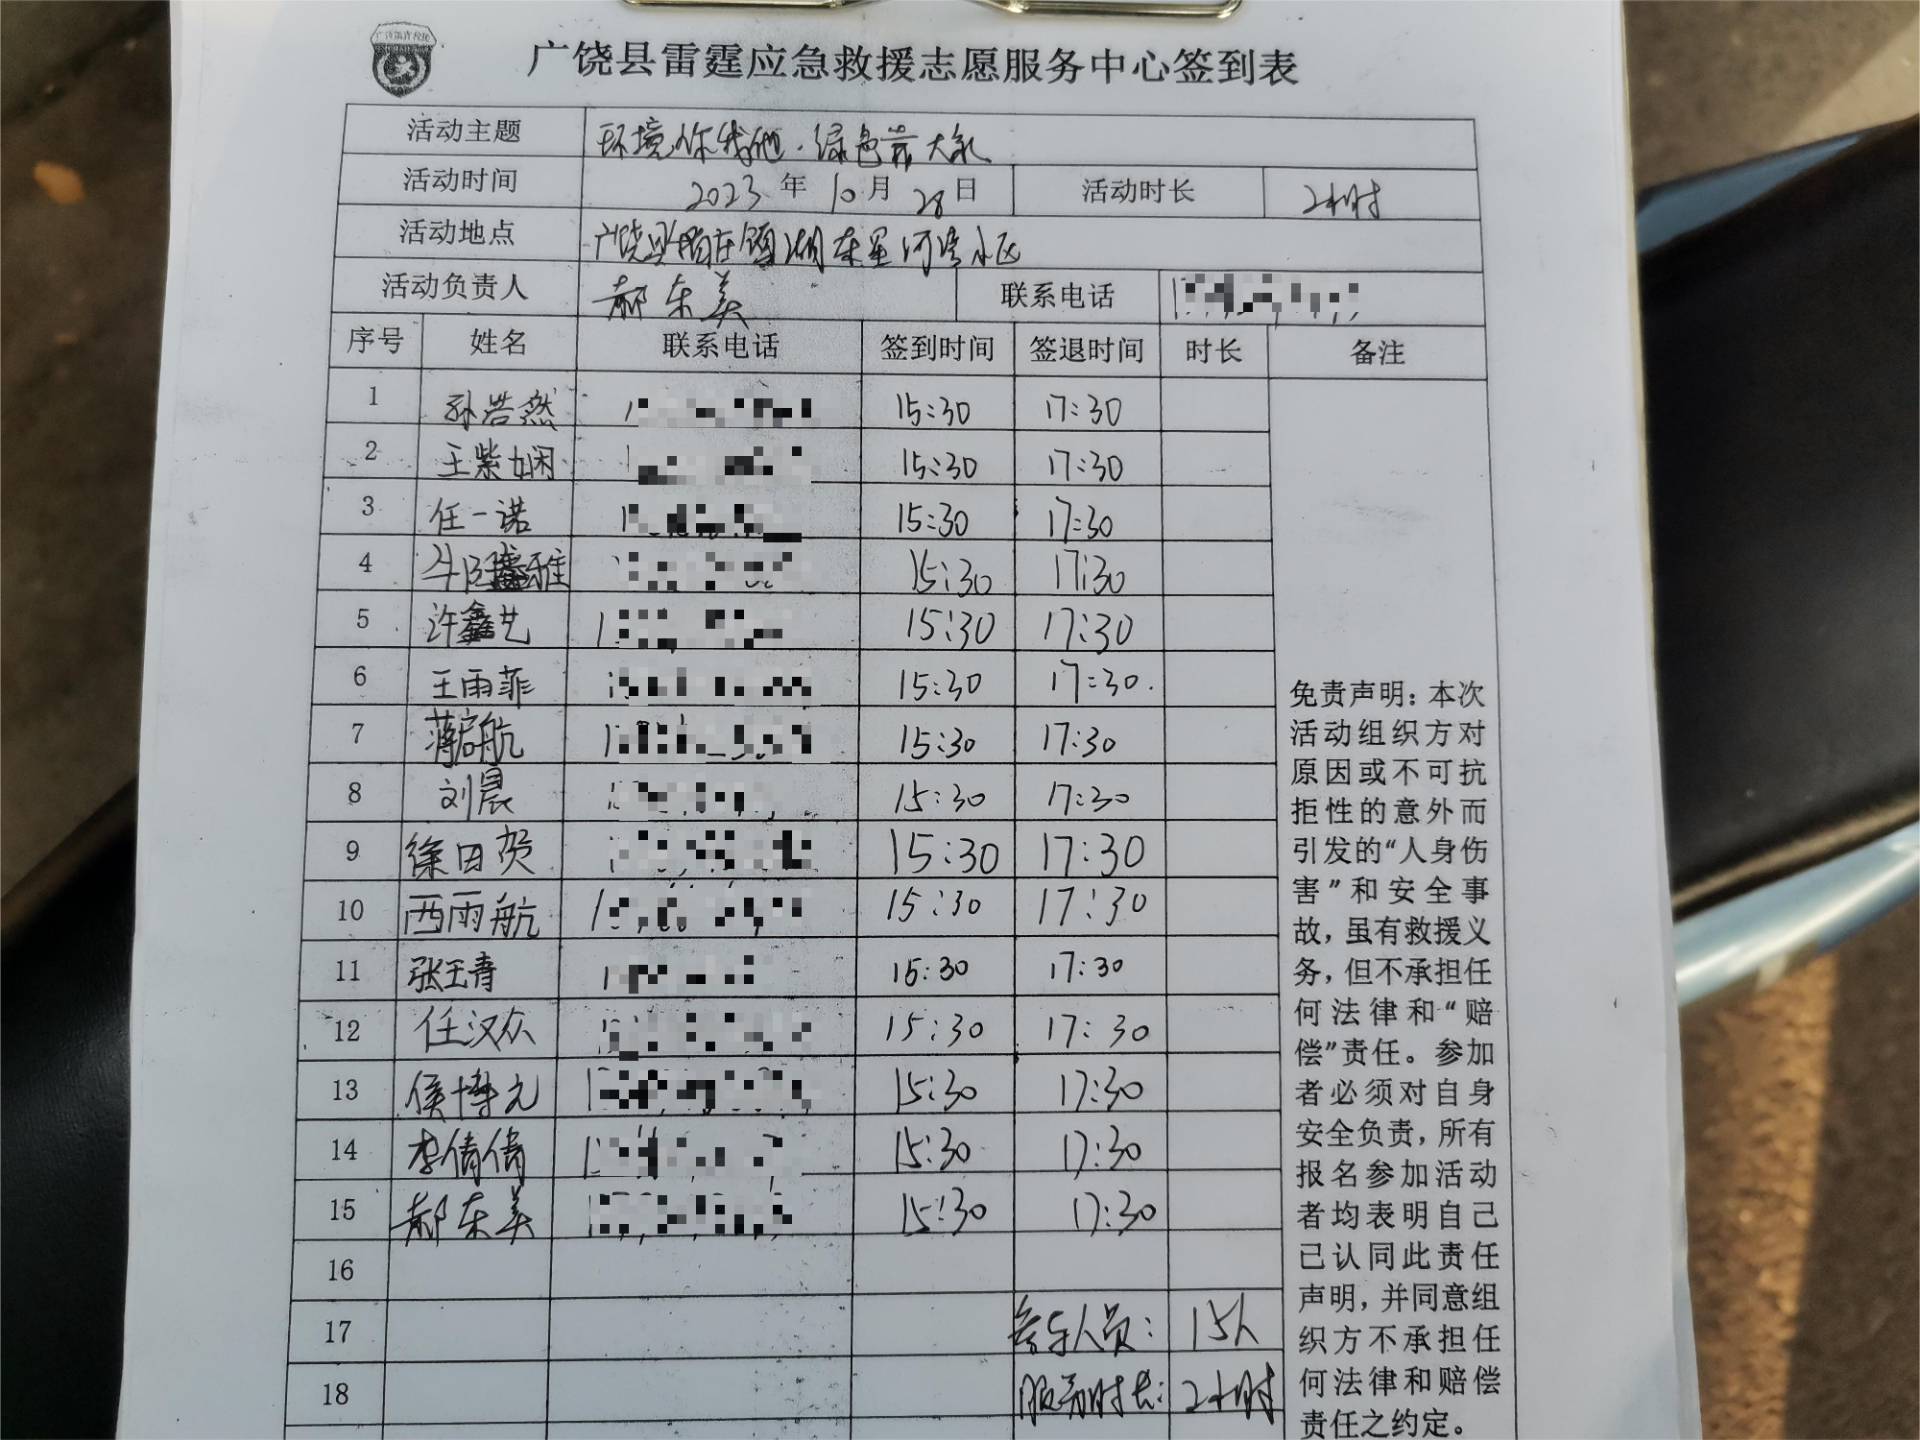 广饶县雷霆应急救援志愿服务中心签到表
活动主题 环境你我他·绿色靠大家
活动时间 2023年10月28日 活动时长 2小时
活动地点 广饶县稻庄镇湖东星河湾小区
活动负责人 郝东美 联系电话
序号 姓名 联系电话 签到时间 签退时间 时长 备注
1 孙浩然 15:30 17:30
2 王紫娴 15:30 17:30
3 任一诺 15:30 17:30
4 15:30 17:30
5 许鑫艺 15:30 17:30
6 王雨菲 15:30 17:30
7 蒋启航 15:30 17:30
8 刘晨 15:30 17:30
9 徐田贺 15:30 17:30
10 西雨航 15:30 17:30
11 张玉青 15:30 17:30
12 任汉众 15:30 17:30
13 侯博元 15:30 17:30
14 李倩倩 15:30 17:30
15 郝东美 15:30 17:30
16
17 参与人员: 15人
18 服务时长: 2小时
免责声明:本次
活动组织方对
原因或不可抗
拒性的意外而
引发的“人身伤
害”和安全事
故,虽有救援义
务,但不承担任
何法律和“赔
偿”责任。参加
者必须对自身
安全负责,所有
报名参加活动
者均表明自己
已认同此责任
声明,并同意组
织方不承担任
何法律和赔偿
责任之约定。